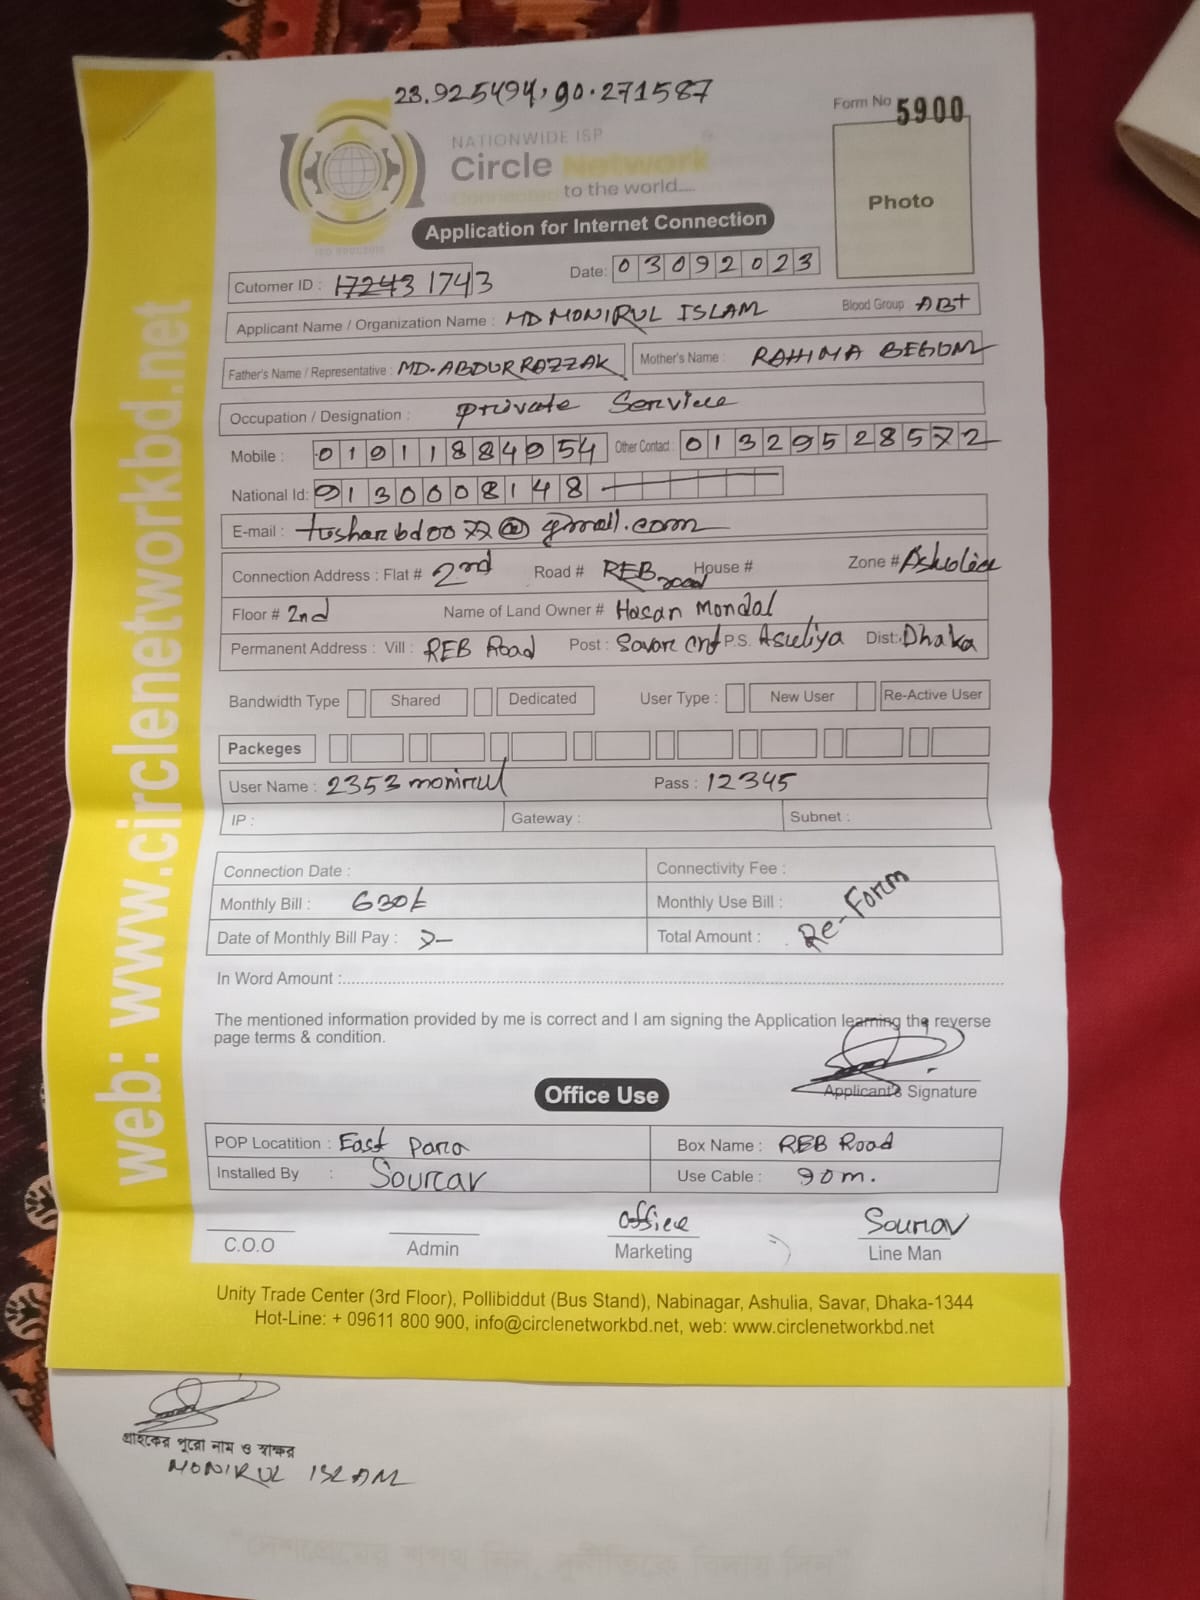 23.925494, 90.271587
Form No 5900
NATIONWIDE ISP
Circle Network
to the world....
Photo
Application for Internet Connection
Cutomer ID : 17243 1743 Date: 03092023
Applicant Name / Organization Name : MD MONIRUL ISLAM Blood Group AB+
Father's Name / Representative : MD. ABDUR RAZZAK Mother's Name : RAHIMA BEGUM
Occupation / Designation : private Service
Mobile : 01911884954 Other Contact : 01329528572
National Id: 9130008148
E-mail : tusharbd0077@gmail.com
Connection Address : Flat # 2nd Road # REB road House # Zone # Ashulia
Floor # 2nd Name of Land Owner # Hasan Mondal
Permanent Address : Vill : REB Road Post : Savar cnt P.S. Asuliya Dist: Dhaka
Bandwidth Type Shared Dedicated User Type : New User Re-Active User
Packeges
User Name : 2353 monirul Pass : 12345
IP : Gateway : Subnet :
Connection Date : Connectivity Fee :
Monthly Bill : 630/ Monthly Use Bill :
Date of Monthly Bill Pay : Total Amount : Re-Form
In Word Amount :
The mentioned information provided by me is correct and I am signing the Application learning the reverse
page terms & condition.
Applicant's Signature
Office Use
POP Locatition : East Para Box Name : REB Road
Installed By : Sourav Use Cable : 90m.
Office Sourav
C.O.O Admin Marketing Line Man
Unity Trade Center (3rd Floor), Pollibiddut (Bus Stand), Nabinagar, Ashulia, Savar, Dhaka-1344
Hot-Line: + 09611 800 900, info@circlenetworkbd.net, web: www.circlenetworkbd.net
web: www.circlenetworkbd.net
গ্রাহকের পুরো নাম ও স্বাক্ষর
MONIRUL ISLAM